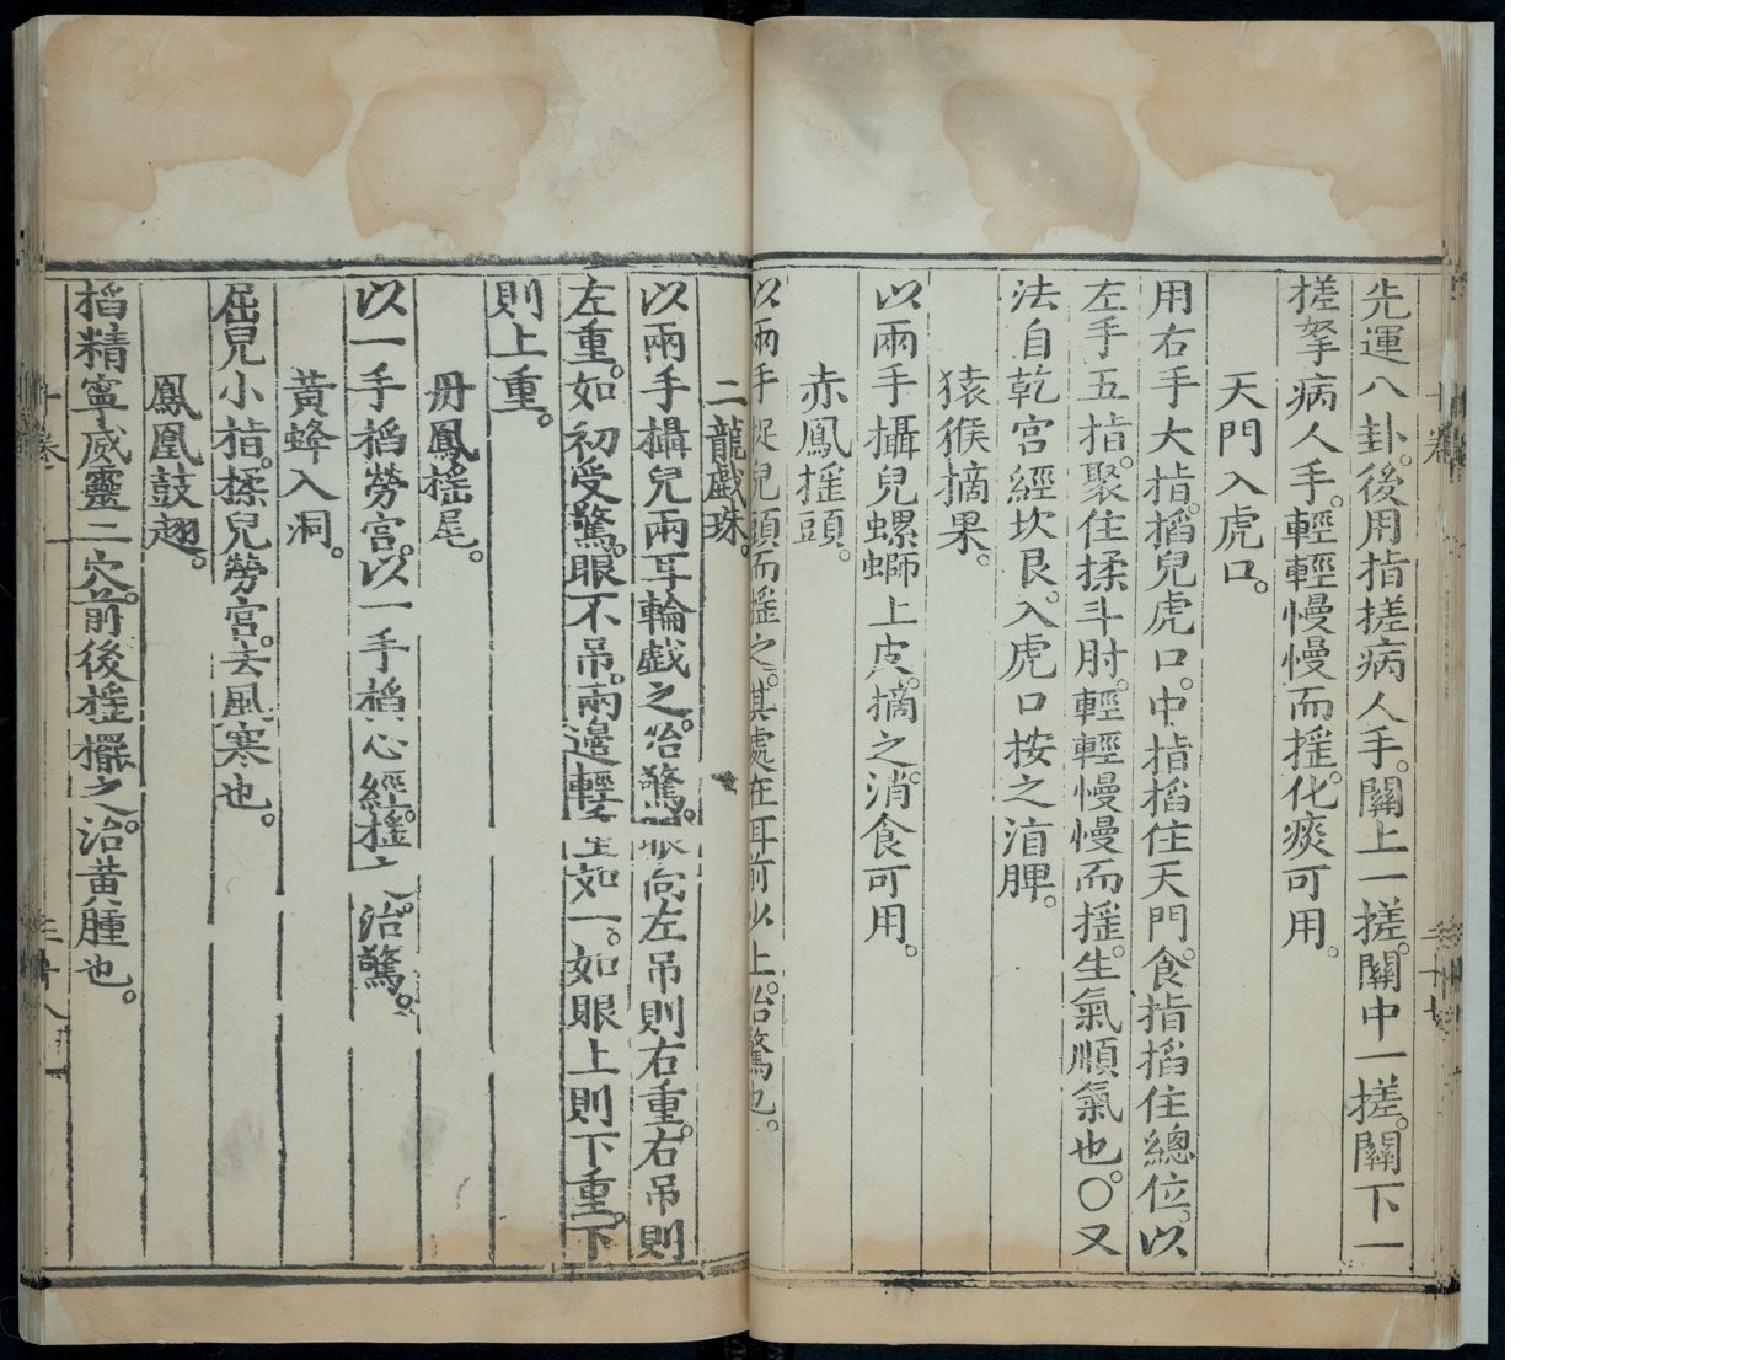 先運八卦。後用指搓病人手。關上一搓。關中一搓。關下一
搓拏病人手。輕輕慢慢而搖。化痰可用。
天門入虎口。
用右手大指。掐兒虎口。中指掐住天門。食指掐住總位。以
左手五指。聚住揉斗肘。輕輕慢慢而搖。生氣順氣也。〇又
法自乾宮經坎艮。入虎口按之淸脾。
猿猴摘果。
以兩手攝兒螺螄上皮。摘之。消食可用。
赤鳳搖頭。
以兩手捉兒頭而搖之。其處在耳前少上。治驚也。
二龍戲珠。
以兩手攝兒兩耳輪戲之。治驚。眼向左吊則右重。右吊則
左重。如初受驚。眼不吊。兩邊輕重如一。如眼上則下重。下
則上重。
丹鳳搖尾。
以一手掐勞宮。以一手掐心經。搖之。治驚。
黃蜂入洞。
屈兒小指。揉兒勞宮。去風寒也。
鳳凰鼓翅。
掐精寧威靈二穴。前後搖擺之。治黃腫也。